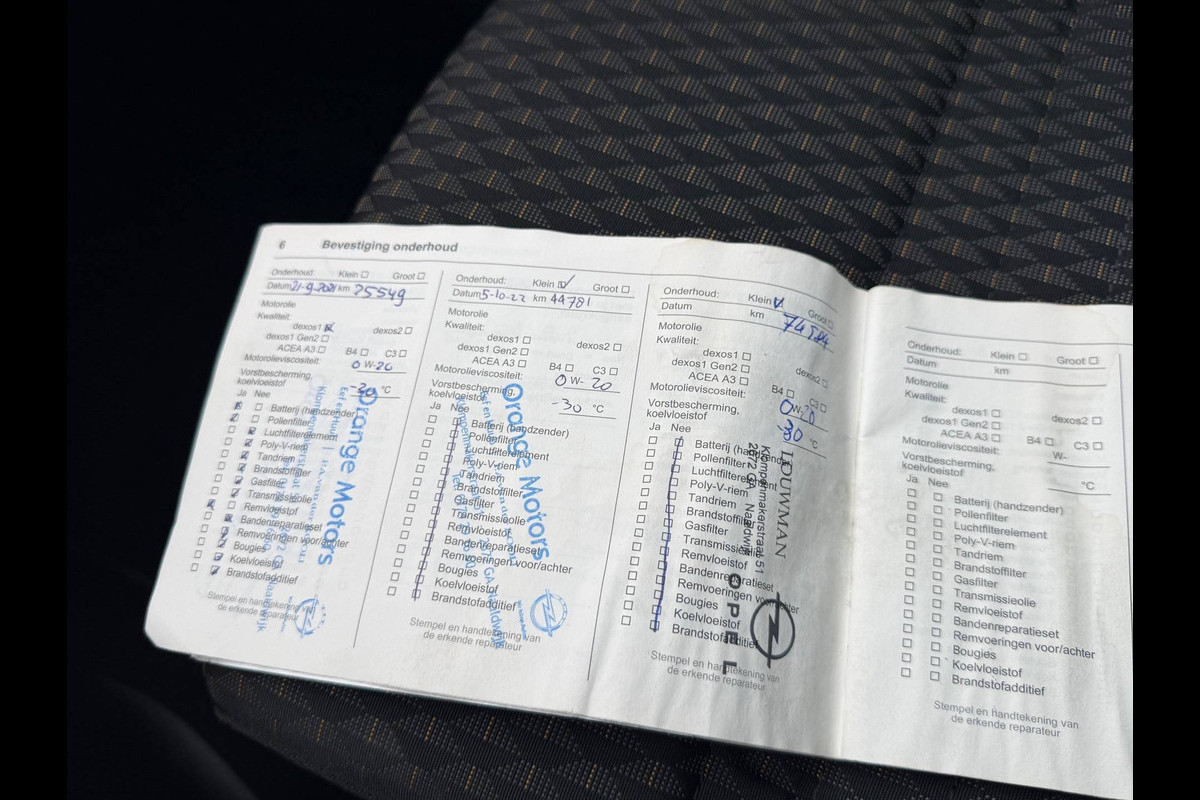 6 Bevestiging onderhoud
Onderhoud: Klein Groot
Datum 21-9-2021 km 25549
Motorolie
Kwaliteit:
dexos1 dexos2
dexos1 Gen2
ACEA A3 B4 C3
Motorolieviscositeit: 0 W-20
Vorstbescherming, koelvloeistof -30 °C
Ja Nee
Batterij (handzender)
Pollenfilter
Luchtfilterelement
Poly-V-riem
Tandriem
Brandstoffilter
Gasfilter
Transmissieolie
Remvloeistof
Bandenreparatieset
Remvoeringen voor/achter
Bougies
Koelvloeistof
Brandstofadditief
Stempel en handtekening van
de erkende reparateur
Orange Motors
Onderhoud: Klein Groot
Datum 5-10-22 km 44781
Motorolie
Kwaliteit:
dexos1 dexos2
dexos1 Gen2
ACEA A3 B4 C3
Motorolieviscositeit: 0 W- 20
Vorstbescherming,
koelvloeistof -30 °C
Ja Nee
Batterij (handzender)
Pollenfilter
Luchtfilterelement
Poly-V-riem
Tandriem
Brandstoffilter
Gasfilter
Transmissieolie
Remvloeistof
Bandenreparatieset
Remvoeringen voor/achter
Bougies
Koelvloeistof
Brandstofadditief
Stempel en handtekening van
de erkende reparateur
Orange Motors
Onderhoud: Klein Groot
Datum km
Motorolie
Kwaliteit:
dexos1 dexos2
dexos1 Gen2
ACEA A3 B4 C3
Motorolieviscositeit: 0W-20
Vorstbescherming,
koelvloeistof -30 °C
Ja Nee
Batterij (handzender)
Pollenfilter
Luchtfilterelement
Poly-V-riem
Tandriem
Brandstoffilter
Gasfilter
Transmissieolie
Remvloeistof
Bandenreparatieset
Remvoeringen voor/achter
Bougies
Koelvloeistof
Brandstofadditief
Stempel en handtekening van
de erkende reparateur
LOUWMAN
Klompenmakerstraat 51
2672 GA Naaldwijk
OPEL
Onderhoud: Klein Groot
Datum km
Motorolie
Kwaliteit:
dexos1 dexos2
dexos1 Gen2
ACEA A3 B4 C3
Motorolieviscositeit: W-
Vorstbescherming,
koelvloeistof °C
Ja Nee
Batterij (handzender)
Pollenfilter
Luchtfilterelement
Poly-V-riem
Tandriem
Brandstoffilter
Gasfilter
Transmissieolie
Remvloeistof
Bandenreparatieset
Remvoeringen voor/achter
Bougies
Koelvloeistof
Brandstofadditief
Stempel en handtekening van
de erkende reparateur